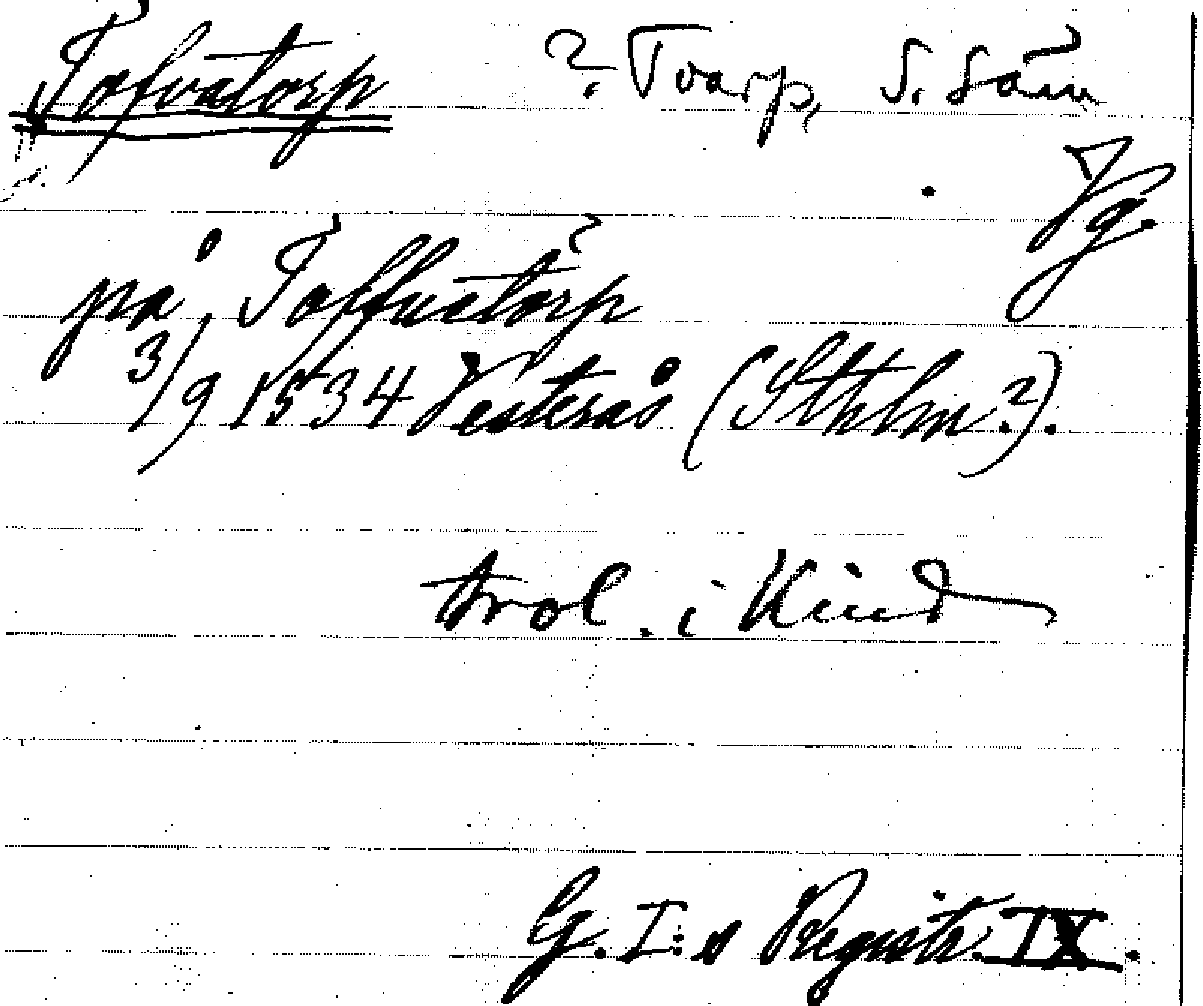 Tofvatorp ? Tvarp, S. Säm
Vg.
på Toffvatorp
3/9 1534 Vesterås (Sthlm?).
trol. i Kind
G. I:s Registr. IX.